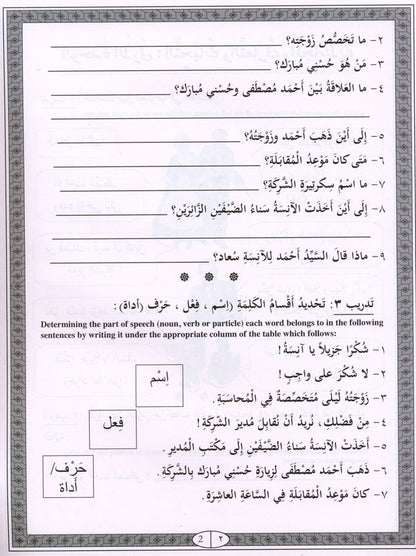 ٢- ما تَخَصُّصُ زَوْجَتِه؟
٣- مَنْ هُوَ حُسْني مُبارَك؟
٤- ما العَلاقَةُ بَيْنَ أَحْمَد مُصْطَفَى وحُسْني مُبارَك؟
٥- إِلى أَيْنَ ذَهَبَ أَحْمَد وزَوْجَتُهُ؟
٦- مَتَى كانَ مَوْعِدُ المُقابَلَةِ؟
٧- ما اسْمُ سِكرتيرَةِ الشَّرِكَةِ؟
٨- إِلى أَيْنَ أَخَذَتْ الآنِسَةُ سَناءُ الضَّيْفَيْنِ الزَّائِرَيْنِ؟
٩- ماذا قالَ السَّيِّدُ أَحْمَد لِلآنِسَةِ سُعاد؟
تَدريب ٣: تَحْديدُ أَقْسامِ الكَلِمَةِ (اِسْم ، فِعْل ، حَرْف / أَداة):
Determining the part of speech (noun, verb or particle) each word belongs to in the following
sentences by writing it under the appropriate column of the table which follows:
١- شُكْرًا جَزيلاً يا آنِسَةُ!
٢- لا شُكْرَ على واجِبٍ!
اِسْم
٣- زَوْجَتُهُ لَيْلَى مُتَخَصِّصَةٌ فِي المُحاسَبَةِ.
٤- مِنْ فَضْلِكِ، نُريدُ أَنْ نُقابِلَ مُديرَ الشَّرِكَةِ!
فِعْل
٥- أَخَذَتْ الآنِسَةُ سَناءُ الضَّيْفَيْنِ إِلَى مَكْتَبِ المُديرِ.
٦- ذَهَبَ أَحْمَد مُصْطَفَى لِزِيارَةِ حُسْني مُبارَك بِالشَّرِكَةِ.
حَرْف/
أَداة
٧- كانَ مَوْعِدُ المُقابَلَةِ فِي السَّاعَةِ العاشِرَةِ.
2 ٢